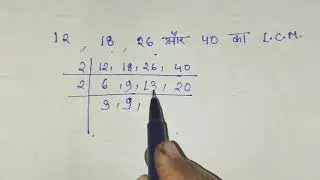 12, 18, 26 और 40 का L.C.M.
2 | 12, 18, 26, 40
2 | 6, 9, 13, 20
3, 9,